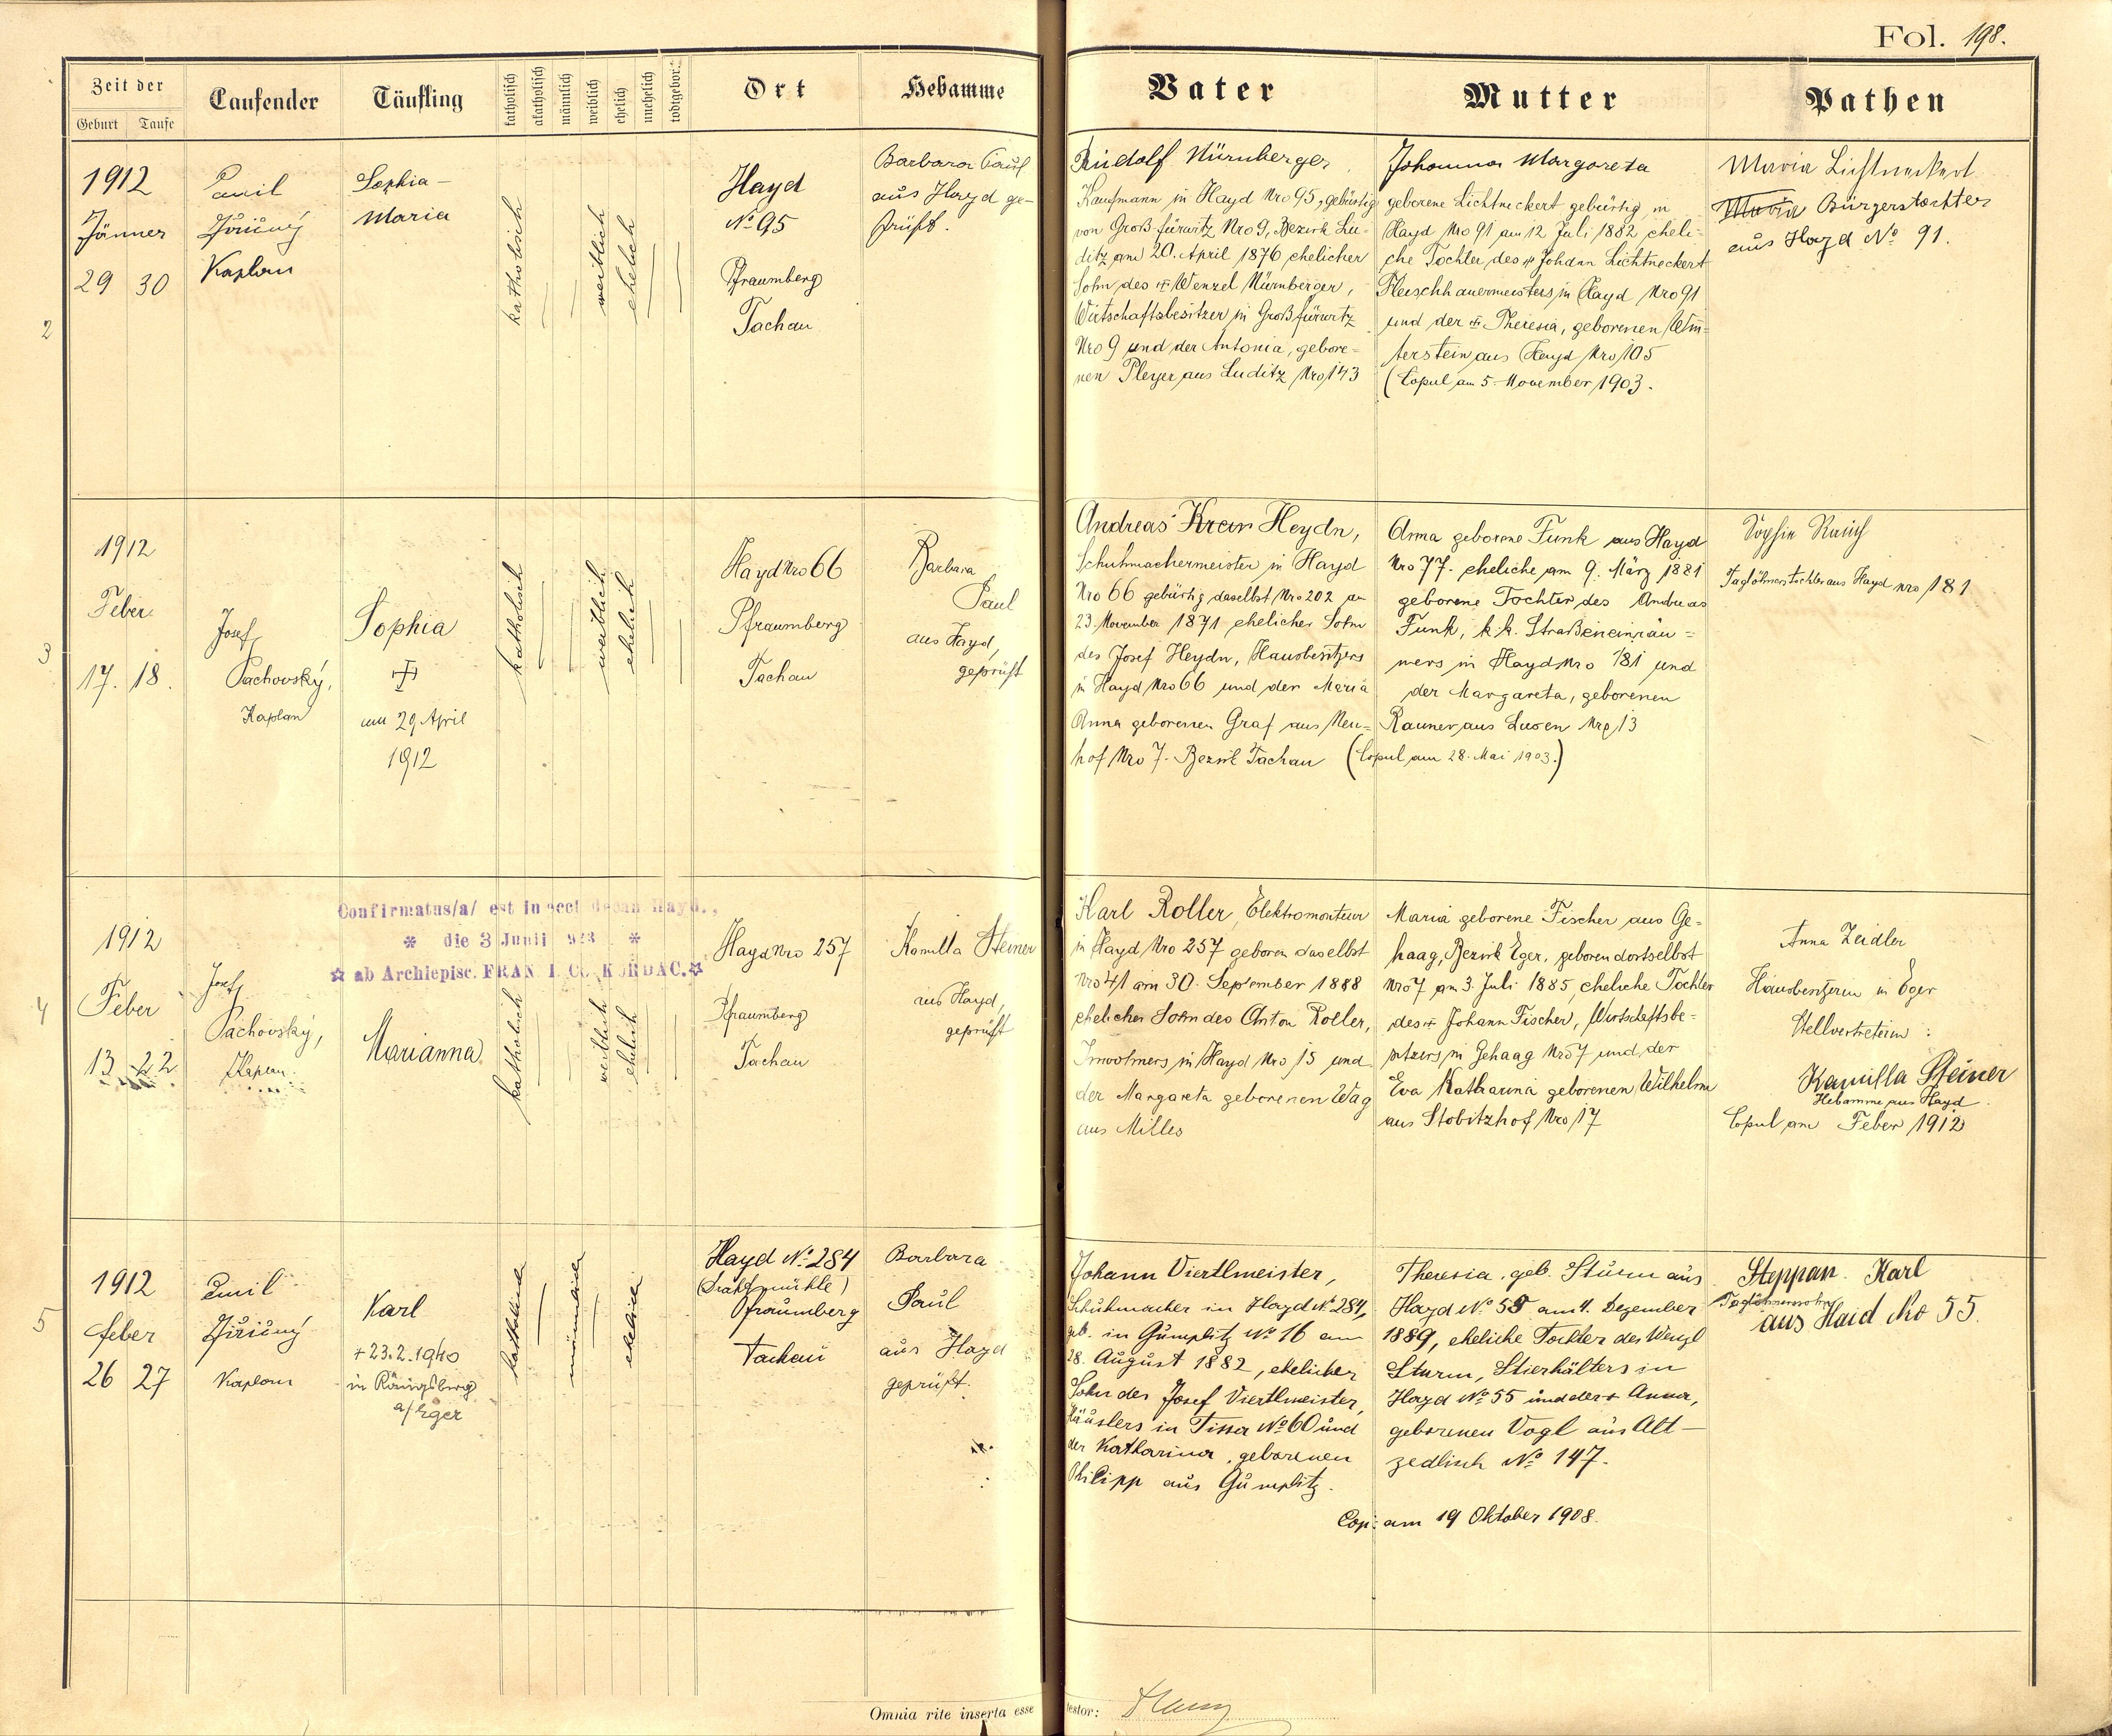 Fol. 198.
Zeit der
Geburt Taufe
Taufender
Täufling
katholisch
akatholisch
männlich
weiblich
ehelich
unehelich
todtgebor.
Ort
Hebamme
Vater
Mutter
Pathen
2
1912
Jänner
29 30
Kaplan
Sophia
Maria
katholisch
weiblich
ehelich
Hayd
No 95
Pfraumberg
Tachau
Barbara Paul
aus Hayd ge-
prüft.
Rudolf Nürnberger,
Kaufmann in Hayd Nro 95, gebürtig
von Großfürwitz Nro 9, Bezirk Lu-
ditz am 20. April 1876 ehelicher
Sohn des Wenzel Nürnberger,
Wirtschaftsbesitzer in Großfürwitz
Nro 9 und der Antonia, gebore=
nen Pleyer aus Luditz Nro 143
Johanna Margareta
geborene Lichtneckert gebürtig in
Hayd Nro 91 am 12 Juli 1882 eheli=
che Tochter des Johann Lichtneckert
Fleischhauermeisters in Hayd Nro 91
und der Theresia, geborenen Win=
terstein aus Hayd Nro 105
(Copul am 5. November 1903.
Maria Lichtneckert
Maria Bürgerstochter
aus Hayd No 91.
3
1912
Feber
17. 18.
Josef
Pachovský,
Kaplan
Sophia
am 29 April
1912
katholisch
weiblich
ehelich
Hayd Nro 66
Pfraumberg
Tachau
Barbara
Paul
aus Hayd,
geprüft
Andreas Heydn,
Schuhmachermeister in Hayd
Nro 66 gebürtig daselbst Nro 202 am
23. November 1871 ehelicher Sohn
des Josef Heydn, Hausbesitzers
in Hayd Nro 66 und der Maria
Anna geborenen Graf aus Neu=
hof Nro 7. Bezirk Tachau
Anna geborene Funk aus Hayd
Nro 77. eheliche am 9. März 1881
geborene Tochter des Andreas
Funk, k.k. Straßeneinräu=
mers in Hayd Nro 181 und
der Margareta, geborenen
Rauner aus Lusen Nro 13
(Copul am 28. Mai 1903.)
Sophie Rauch
Taglöhnerstochter aus Hayd nro 181
4
1912
Feber
13 22
Josef
Pachovský,
Kaplan
Confirmatus/a/ est in eccl decan Hayd.,
* die 3 Junii 923 *
☆ ab Archiepisc. FRAN I. CO KORDAC.☆
Marianna
katholisch
weiblich
ehelich
Hayd Nro 257
Pfraumberg
Tachau
Kamilla Steiner
aus Hayd,
geprüft
Karl Roller, Elektromonteur
in Hayd Nro 257 geboren daselbst
Nro 41 am 30. September 1888
ehelicher Sohn des Anton Roller,
Inwohners in Hayd Nro 15 und
der Margareta geborenen Wag
aus Milles
Maria geborene Fischer aus Ge-
haag, Bezirk Eger, geboren dortselbst
Nro 7 am 3. Juli 1885, eheliche Tochter
des Johann Fischer, Wirtschaftsbe=
sitzers, in Gehaag Nro 7 und der
Eva Katharina geborenen Wilhelm
aus Stobitzhof Nro 17
Anna Zeidler
Hausbesitzerin in Eger
Stellvertreterin:
Kamilla Steiner
Hebamme aus Hayd
Copul am Feber 1912
5
1912
Feber
26 27
Emil
Kaplan
Karl
+ 23.2.1940
in Königsberg
a/Eger
katholisch
männlich
ehelich
Hayd No. 284
(Drahtmühle)
Pfraumberg
Tachau
Barbara
Paul
aus Hayd
geprüft.
Johann Viertlmeister,
Schuhmacher in Hayd No. 284,
geb. in Gumplitz No 16 am
28. August 1882, ehelicher
Sohn des Josef Viertlmeister,
Häuslers in Tissa No 60 und
der Katharina, geborenen
Philipp aus Gumplitz.
Theresia, geb. Sturm aus
Hayd No. 55 am 11. Dezember
1889, eheliche Tochter des Wenzl
Sturm, Stierhälters in
Hayd No 55 und der + Anna,
geborenen Vogl aus Alt-
zedlisch No 147.
Cop: am 19 Oktober 1908.
Steppan Karl
Taglöhnerssohn
aus Haid No 55.
Omnia rite inserta esse testor: